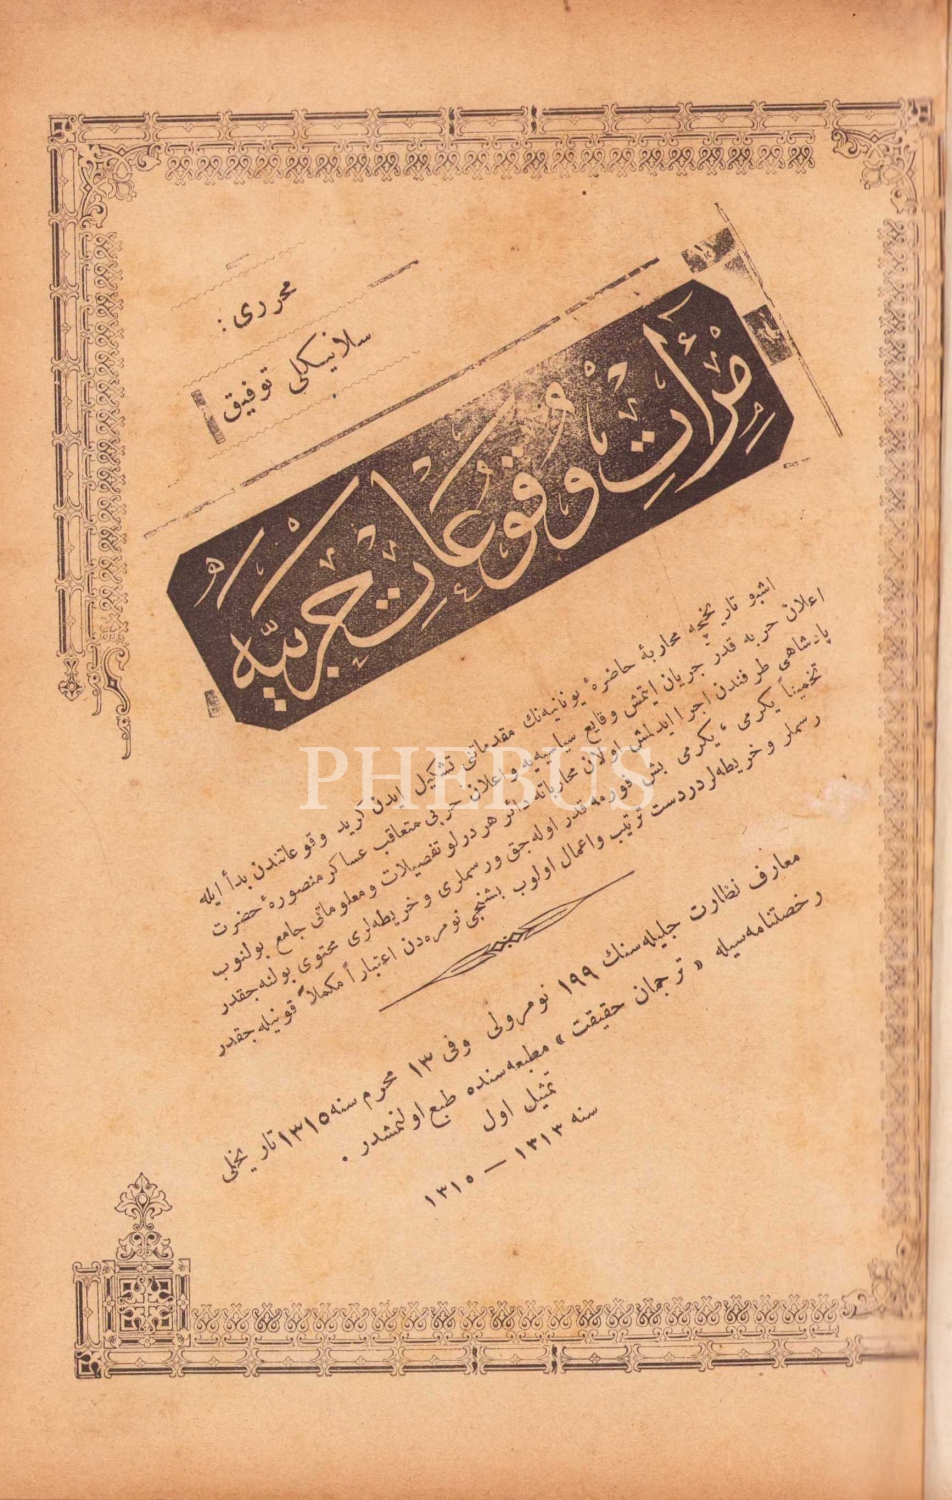 محرری :
سلانیکلی توفیق
مِرْأَتِ وُقُوعَاتِ حَرْبِیَّه
اشبو تاریخچه محاربهٔ حاضرهٔ یونانیه‌نك مقدماتنی تشکیل ایدن کرید وقوعاتندن بدأ ایله
اعلان حربه قدر جریان ایتمش وقایع سیاسیه‌یه و اعلان حربی متعاقب عساکر منصورهٔ حضرت
پادشاهی طرفندن اجرا ایدلمش اولان محارباته دائر هر درلو تفصیلات و معلوماتی جامع بولنوب
تخمیناً یکرمی ، یکرمی بش فورمه قدر اوله‌جق و رسملری و خریطه‌لری محتوی بولنه‌جقدر
رسملر و خریطه‌لر دردست ترتیب و اعمال اولوب بشنجی نومره‌دن اعتباراً مکملاً قونیله‌جقدر
معارف نظارت جلیله‌سنك ١٩٩ نومرولی وفی ١٣ محرم سنه ١٣١٥ تاریخلی
رخصتنامه‌سیله « ترجمان حقیقت » مطبعه‌سنده طبع اولنمشدر .
تمثیل اول
سنه ١٣١٣ — ١٣١٥
PHEBUS